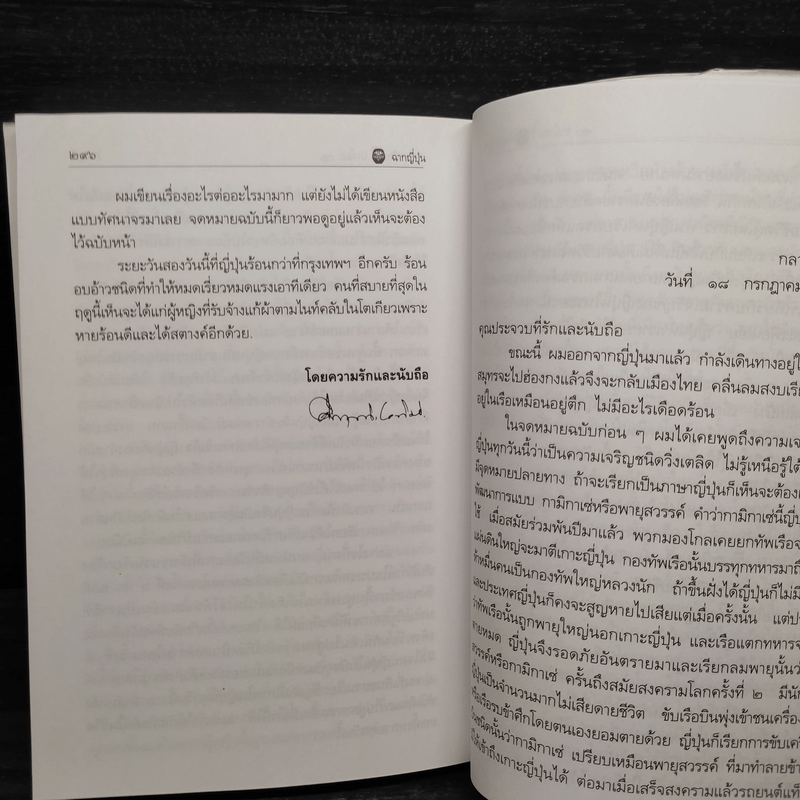 ๒๙๖
ฉากญี่ปุ่น
ผมเขียนเรื่องอะไรต่ออะไรมามาก แต่ยังไม่ได้เขียนหนังสือ
แบบทัศนาจรมาเลย จดหมายฉบับนี้ก็ยาวพอดูอยู่แล้วเห็นจะต้อง
ไว้ฉบับหน้า
ระยะวันสองวันนี้ที่ญี่ปุ่นร้อนกว่าที่กรุงเทพฯ อีกครับ ร้อน
อบอ้าวชนิดที่ทำให้หมดเรี่ยวหมดแรงเอาทีเดียว คนที่สบายที่สุดใน
ฤดูนี้เห็นจะได้แก่ผู้หญิงที่รับจ้างแก้ผ้าตามไนท์คลับในโตเกียวเพราะ
หายร้อนดีและได้สตางค์อีกด้วย.
โดยความรักและนับถือ
กลา
วันที่ ๑๘ กรกฎาคม
คุณประจวบที่รักและนับถือ
ขณะนี้ ผมออกจากญี่ปุ่นมาแล้ว กำลังเดินทางอยู่ใ
สมุทรจะไปฮ่องกงแล้วจึงจะกลับเมืองไทย คลื่นลมสงบเรีย
อยู่ในเรือเหมือนอยู่ตึก ไม่มีอะไรเดือดร้อน
ในจดหมายฉบับก่อน ๆ ผมได้เคยพูดถึงความเจ
ญี่ปุ่นทุกวันนี้ว่าเป็นความเจริญชนิดวิ่งเตลิด ไม่รู้เหนือรู้ใต้
มีจุดหมายปลายทาง ถ้าจะเรียกเป็นภาษาญี่ปุ่นก็เห็นจะต้อง
พัฒนาการแบบ กามิกาเซ่หรือพายุสวรรค์ คำว่ากามิกาเซ่นี้ญี่ปุ
ใช้ เมื่อสมัยร่วมพันปีมาแล้ว พวกมองโกลเคยยกทัพเรือจ
แผ่นดินใหญ่จะมาตีเกาะญี่ปุ่น กองทัพเรือนั้นบรรทุกทหารมาถึ
ห้าหมื่นคนเป็นกองทัพใหญ่หลวงนัก ถ้าขึ้นฝั่งได้ญี่ปุ่นก็ไม่มี
และประเทศญี่ปุ่นก็คงจะสูญหายไปเสียแต่เมื่อครั้งนั้น แต่ปร
ว่าทัพเรือนั้นถูกพายุใหญ่นอกเกาะญี่ปุ่น และเรือแตกทหารจ
ตายหมด ญี่ปุ่นจึงรอดภัยอันตรายมาและเรียกลมพายุนั้นว่
สวรรค์หรือกามิกาเซ่ ครั้นถึงสมัยสงครามโลกครั้งที่ ๒ มีนัก
ญี่ปุ่นเป็นจำนวนมากไม่เสียดายชีวิต ขับเรือบินพุ่งเข้าชนเครื่อง
เรือรบข้าศึกโดยตนเองยอมตายด้วย ญี่ปุ่นก็เรียกการขับเครื่
ชนิดนั้นว่ากามิกาเซ่ เปรียบเหมือนพายุสวรรค์ ที่มาทำลายข้า
ให้เข้าถึงเกาะญี่ปุ่นได้ ต่อมาเมื่อเสร็จสงครามแล้วรถยนต์แท็